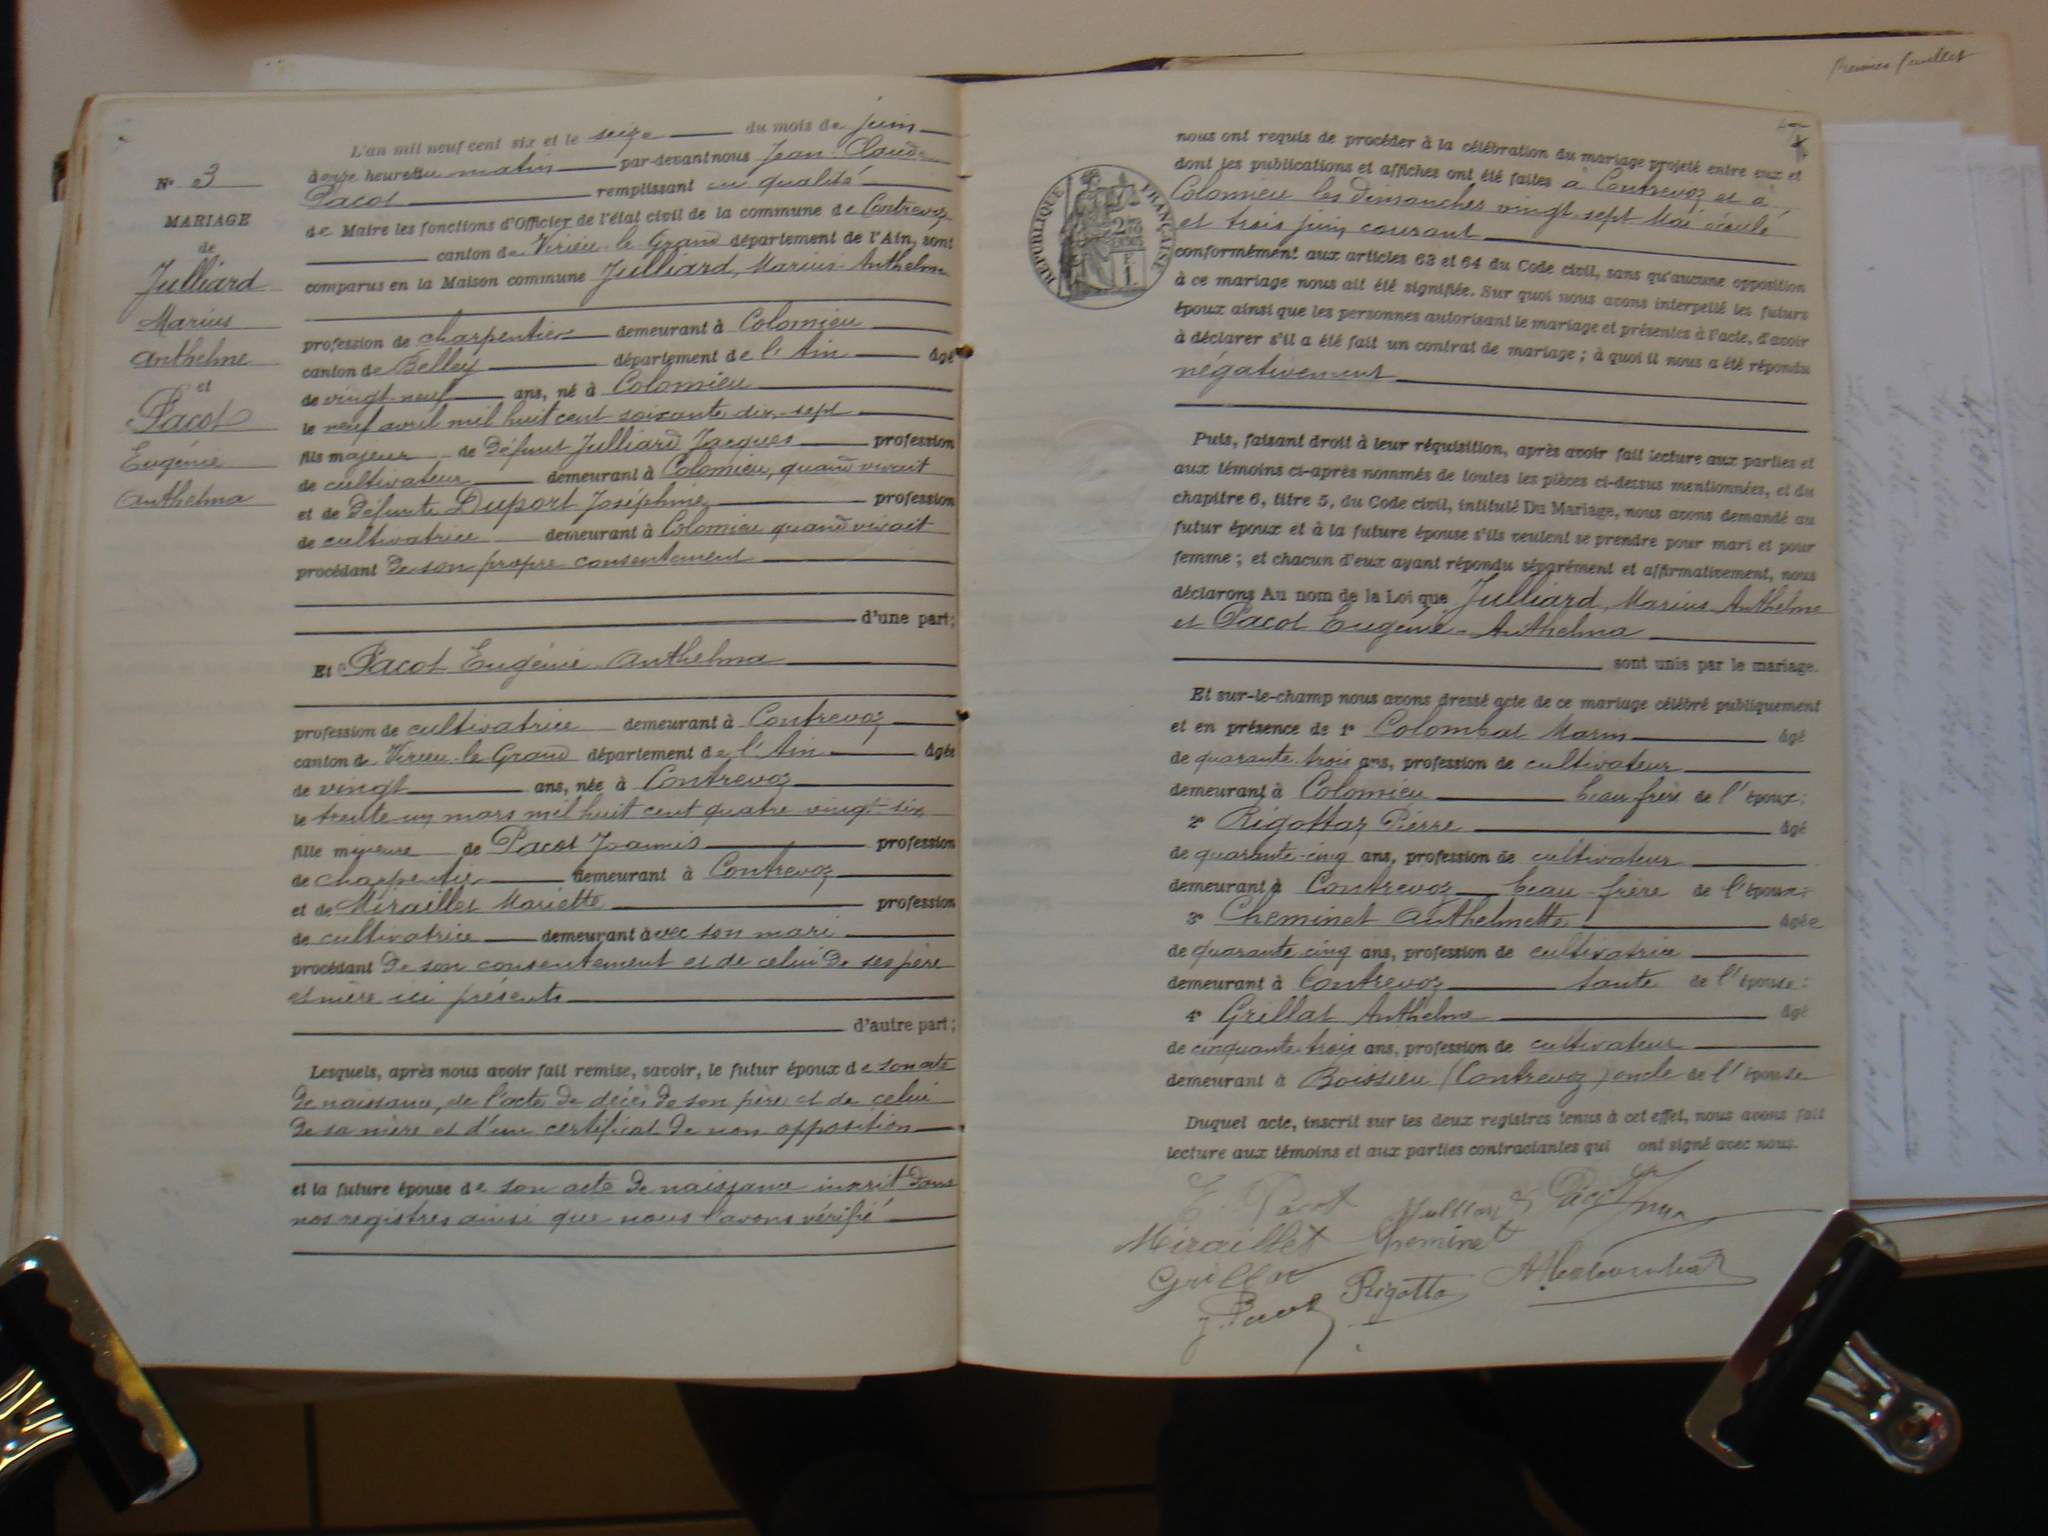 Premier feuillet
N° 3
MARIAGE
de
Julliard
Marius
Anthelme
et
Pacot
Eugénie
Anthelma
L'an mil neuf cent six et le seize du mois de juin
à onze heures du matin par-devant nous Jean-Claude
Pacot remplissant en qualité
de Maire les fonctions d'Officier de l'état civil de la commune de Contrevoz
canton de Virieu-le-Grand département de l'Ain, sont
comparus en la Maison commune Julliard, Marius-Anthelme
profession de charpentier demeurant à Colomieu
canton de Belley département de l'Ain âgé
de vingt-neuf ans, né à Colomieu
le neuf avril mil huit cent soixante dix-sept
fils majeur de défunt Julliard Jacques profession
de cultivateur demeurant à Colomieu, quand vivait
et de défunte Duport Joséphine profession
de cultivatrice demeurant à Colomieu quand vivait
procédant de son propre consentement
d'une part;
Et Pacot Eugénie-Anthelma
profession de cultivatrice demeurant à Contrevoz
canton de Virieu-le-Grand département de l'Ain âgée
de vingt ans, née à Contrevoz
le trente un mars mil huit cent quatre vingt-six
fille mineure de Pacot Joannis profession
de charpentier demeurant à Contrevoz
et de Miraillet Mariette profession
de cultivatrice demeurant avec son mari
procédant de son consentement et de celui de ses père
et mère ici présents
d'autre part;
Lesquels, après nous avoir fait remise, savoir, le futur époux de son acte
de naissance, de l'acte de décès de son père et de celui
de sa mère et d'un certificat de non opposition
et la future épouse de son acte de naissance inscrit dans
nos registres ainsi que nous l'avons vérifié
RÉPUBLIQUE FRANÇAISE
nous ont requis de procéder à la célébration du mariage projeté entre eux et
dont les publications et affiches ont été faites à Contrevoz et à
Colomieu les dimanches vingt-sept Mai écoulé
et trois juin courant
conformément aux articles 63 et 64 du Code civil, sans qu'aucune opposition
à ce mariage nous ait été signifiée. Sur quoi nous avons interpellé les futurs
époux ainsi que les personnes autorisant le mariage et présentes à l'acte, d'avoir
à déclarer s'il a été fait un contrat de mariage; à quoi il nous a été répondu
négativement
Puis, faisant droit à leur réquisition, après avoir fait lecture aux parties et
aux témoins ci-après nommés de toutes les pièces ci-dessus mentionnées, et du
chapitre 6, titre 5, du Code civil, intitulé Du Mariage, nous avons demandé au
futur époux et à la future épouse s'ils veulent se prendre pour mari et pour
femme; et chacun d'eux ayant répondu séparément et affirmativement, nous
déclarons Au nom de la Loi que Julliard, Marius Anthelme
et Pacot Eugénie-Anthelma
sont unis par le mariage.
Et sur-le-champ nous avons dressé acte de ce mariage célébré publiquement
et en présence de 1° Colombat Marin âgé
de quarante-trois ans, profession de cultivateur
demeurant à Colomieu beau frère de l'époux;
2° Rigottaz Pierre âgé
de quarante-cinq ans, profession de cultivateur
demeurant à Contrevoz beau-frère de l'époux;
3° Cheminet Anthelmette âgée
de quarante cinq ans, profession de cultivatrice
demeurant à Contrevoz tante de l'épouse;
4° Grillat Anthelme âgé
de cinquante-trois ans, profession de cultivateur
demeurant à Boissieu (Contrevoz) oncle de l'épouse
Duquel acte, inscrit sur les deux registres tenus à cet effet, nous avons fait
lecture aux témoins et aux parties contractantes qui ont signé avec nous.
E. Pacot Julliard Pacot
Miraillet Cheminet
Grillat Rigotta
J. Pacot